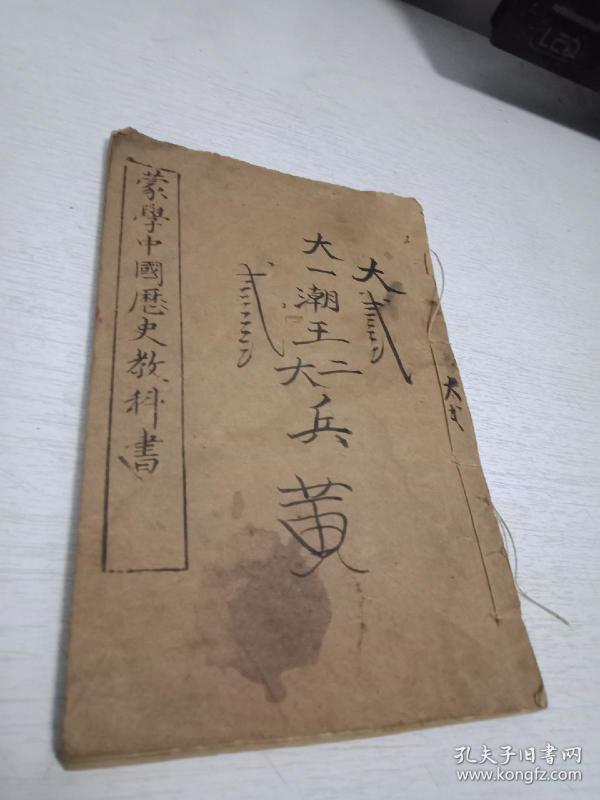 蒙學中國歷史教科書
大
大一潮王二
大兵黄
弍
大弍
孔夫子旧书网
www.kongfz.com